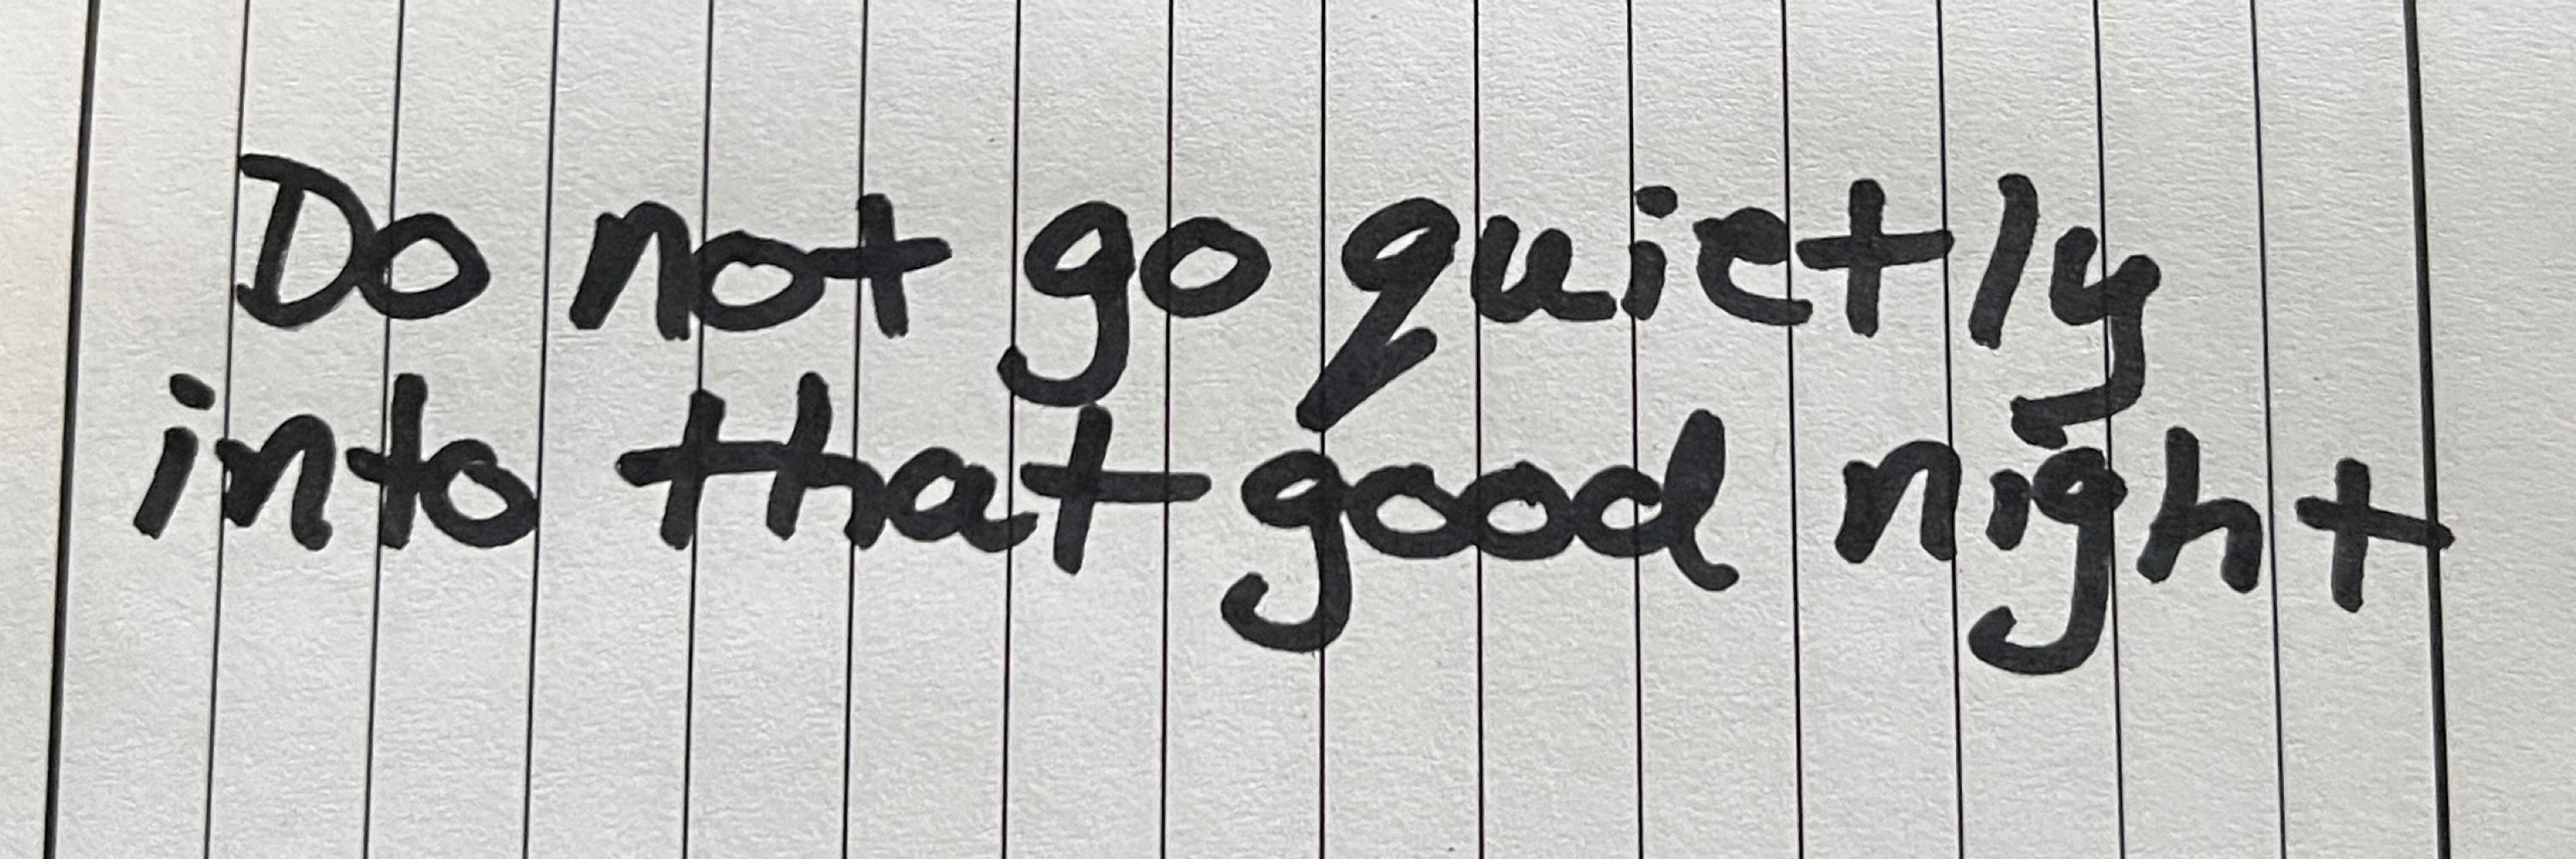 Do not go quietly
into that good night